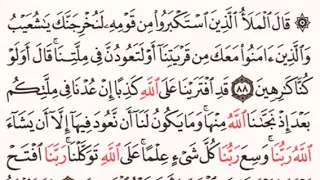 ۞ قَالَ ٱلْمَلَأُ ٱلَّذِينَ ٱسْتَكْبَرُوا۟ مِن قَوْمِهِۦ لَنُخْرِجَنَّكَ يَٰشُعَيْبُ
وَٱلَّذِينَ ءَامَنُوا۟ مَعَكَ مِن قَرْيَتِنَآ أَوْ لَتَعُودُنَّ فِى مِلَّتِنَا ۚ قَالَ أَوَلَوْ
كُنَّا كَٰرِهِينَ ٨٨ قَدِ ٱفْتَرَيْنَا عَلَى ٱللَّهِ كَذِبًا إِنْ عُدْنَا فِى مِلَّتِكُم
بَعْدَ إِذْ نَجَّىٰنَا ٱللَّهُ مِنْهَا ۚ وَمَا يَكُونُ لَنَآ أَن نَّعُودَ فِيهَآ إِلَّآ أَن يَشَآءَ
ٱللَّهُ رَبُّنَا ۚ وَسِعَ رَبُّنَا كُلَّ شَىْءٍ عِلْمًا ۚ عَلَى ٱللَّهِ تَوَكَّلْنَا ۚ رَبَّنَا ٱفْتَحْ